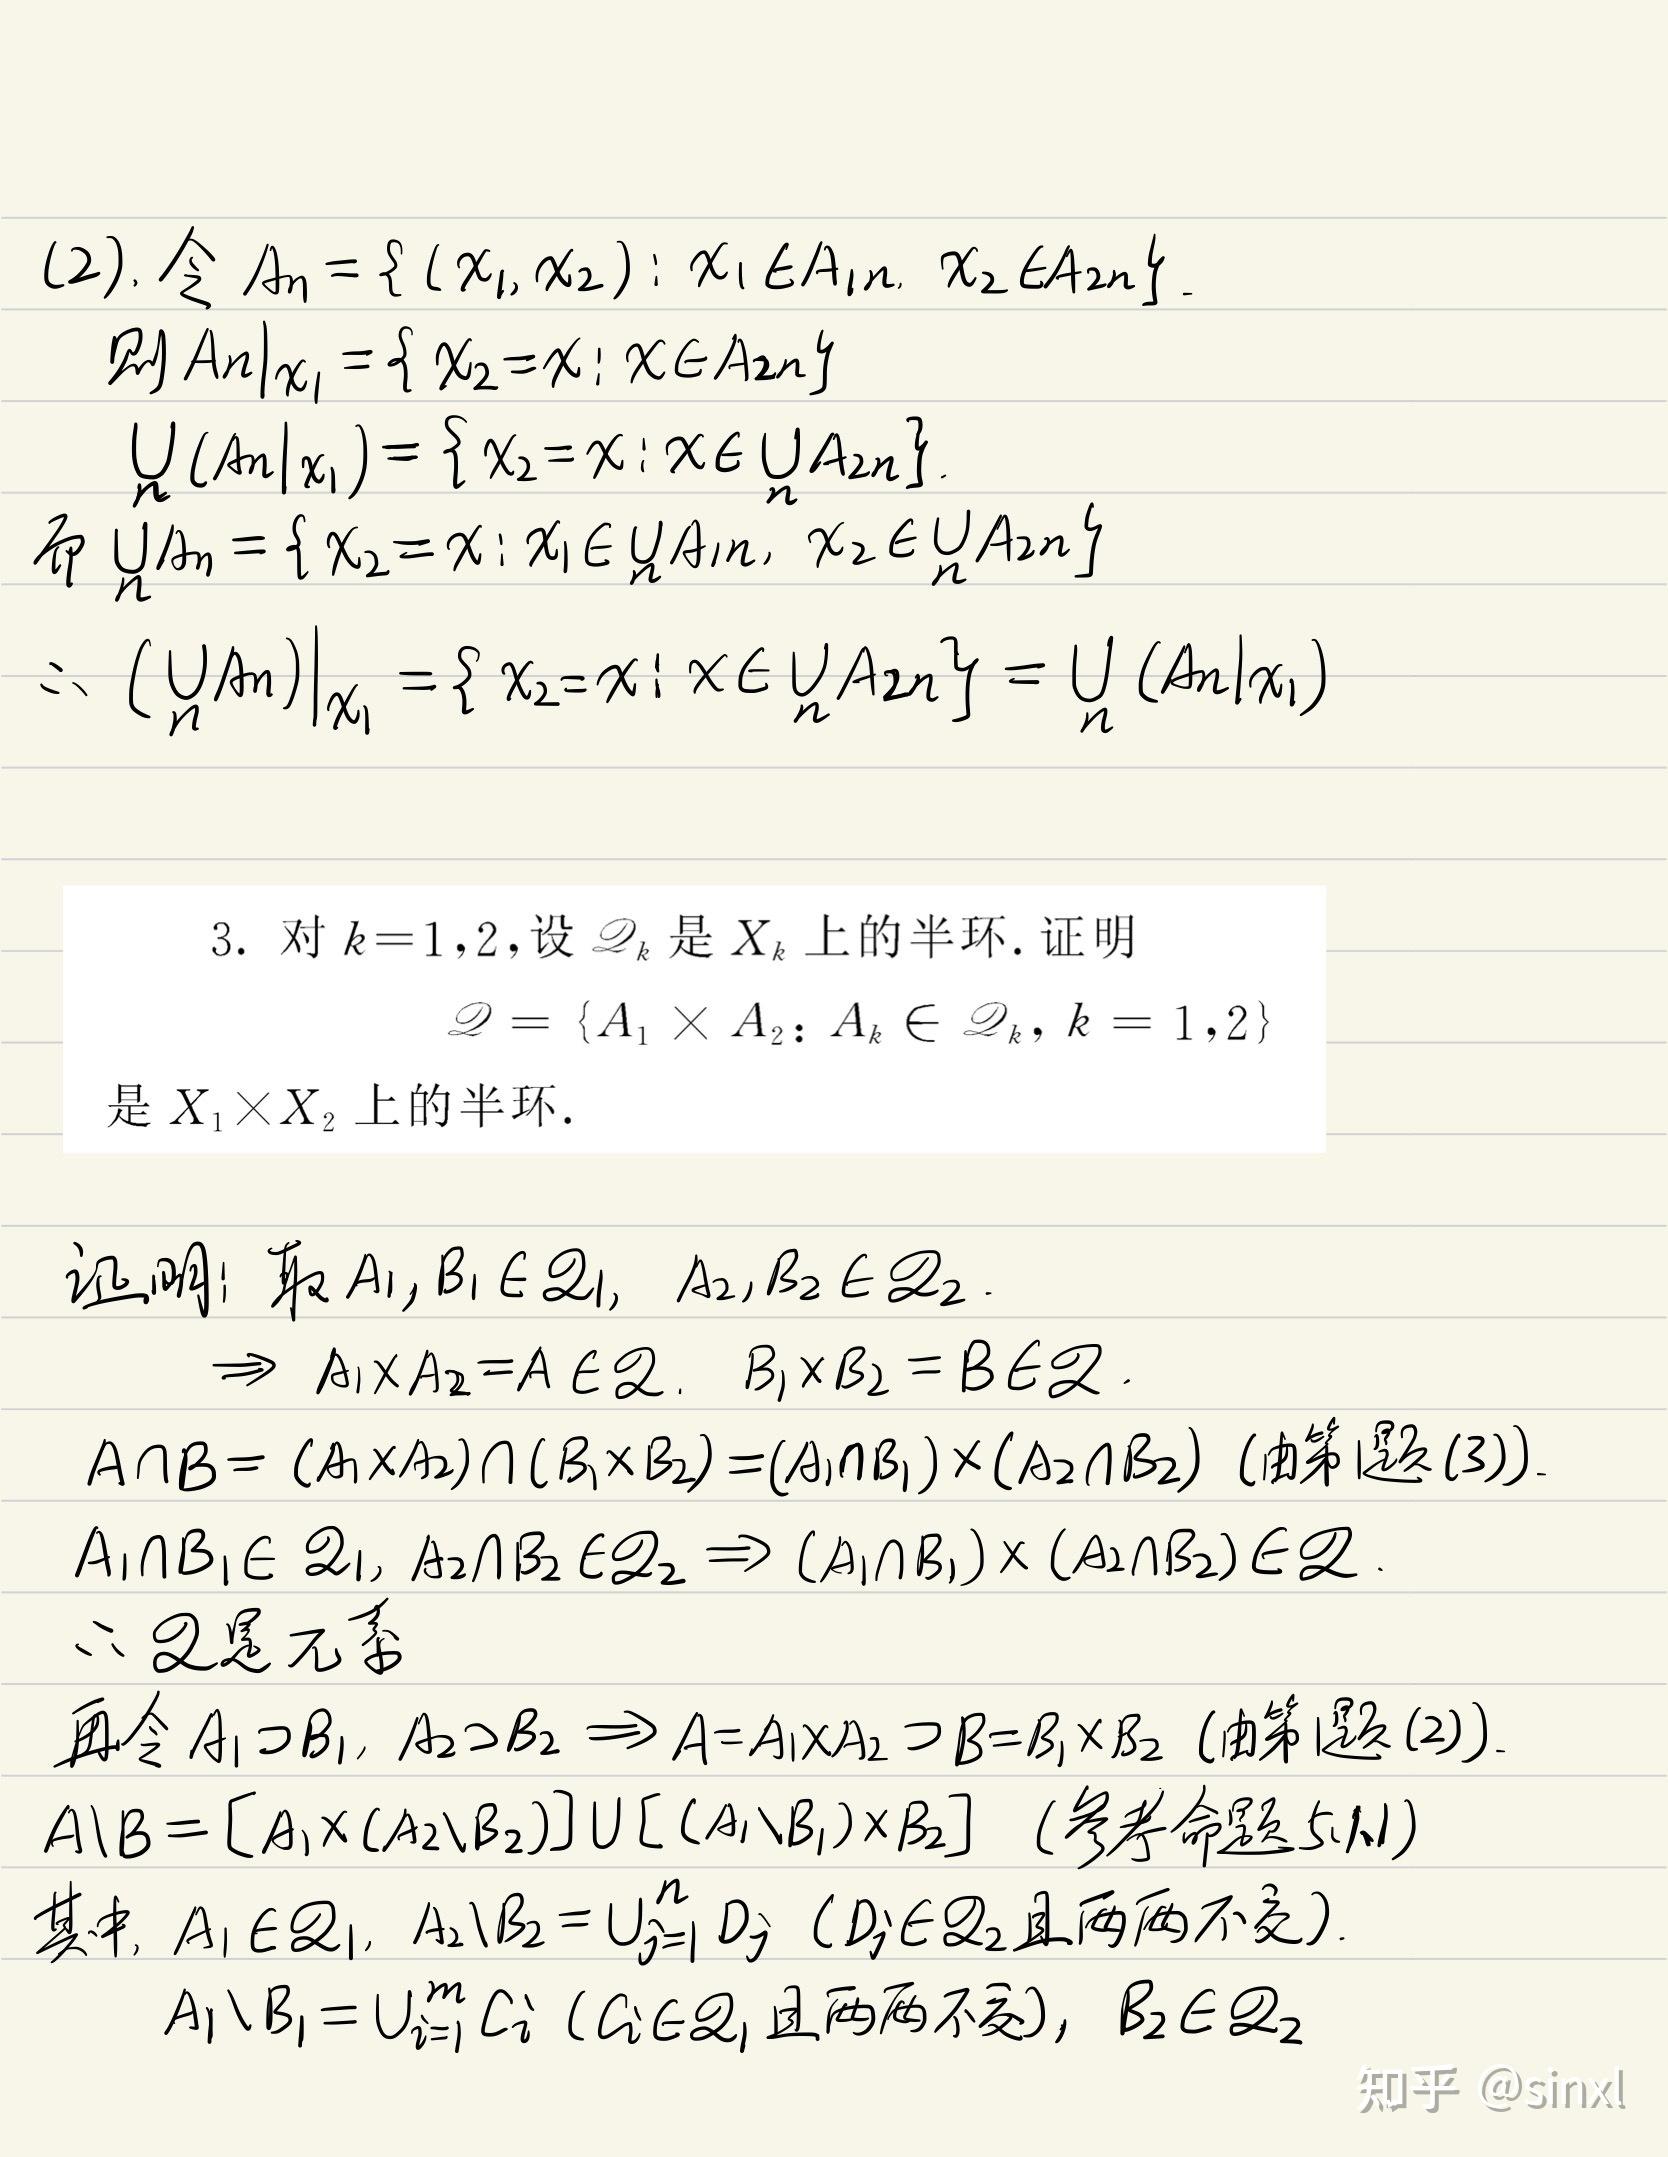 (2). 令 An = { (x₁, x₂) : x₁ ∈ A₁n, x₂ ∈ A₂n }.
则 An|x₁ = { x₂ = x : x ∈ A₂n }
⋃n (An|x₁) = { x₂ = x : x ∈ ⋃n A₂n }.
而 ⋃n An = { x₂ = x : x₁ ∈ ⋃n A₁n, x₂ ∈ ⋃n A₂n }
∴ (⋃n An)|x₁ = { x₂ = x : x ∈ ⋃n A₂n } = ⋃n (An|x₁)
3. 对 k=1,2,设 𝒬ₖ 是 Xₖ 上的半环. 证明
𝒬 = {A₁ × A₂: Aₖ ∈ 𝒬ₖ, k = 1,2}
是 X₁×X₂ 上的半环.
证明: 取 A₁, B₁ ∈ 𝒬₁, A₂, B₂ ∈ 𝒬₂.
⇒ A₁×A₂ = A ∈ 𝒬. B₁×B₂ = B ∈ 𝒬.
A∩B = (A₁×A₂)∩(B₁×B₂) = (A₁∩B₁)×(A₂∩B₂) (由第1题(3)).
A₁∩B₁ ∈ 𝒬₁, A₂∩B₂ ∈ 𝒬₂ ⇒ (A₁∩B₁)×(A₂∩B₂) ∈ 𝒬.
∴ 𝒬是π系
再令 A₁⊃B₁, A₂⊃B₂ ⇒ A=A₁×A₂ ⊃ B=B₁×B₂ (由第1题(2)).
A\B = [A₁×(A₂\B₂)]∪[(A₁\B₁)×B₂] (参考命题5.1.1)
其中, A₁ ∈ 𝒬₁, A₂\B₂ = ⋃ⁿⱼ₌₁ Dⱼ (Dⱼ∈𝒬₂且两两不交).
A₁\B₁ = ⋃ᵐᵢ₌₁ Cᵢ (Cᵢ∈𝒬₁且两两不交), B₂ ∈ 𝒬₂
知乎 @sinxl